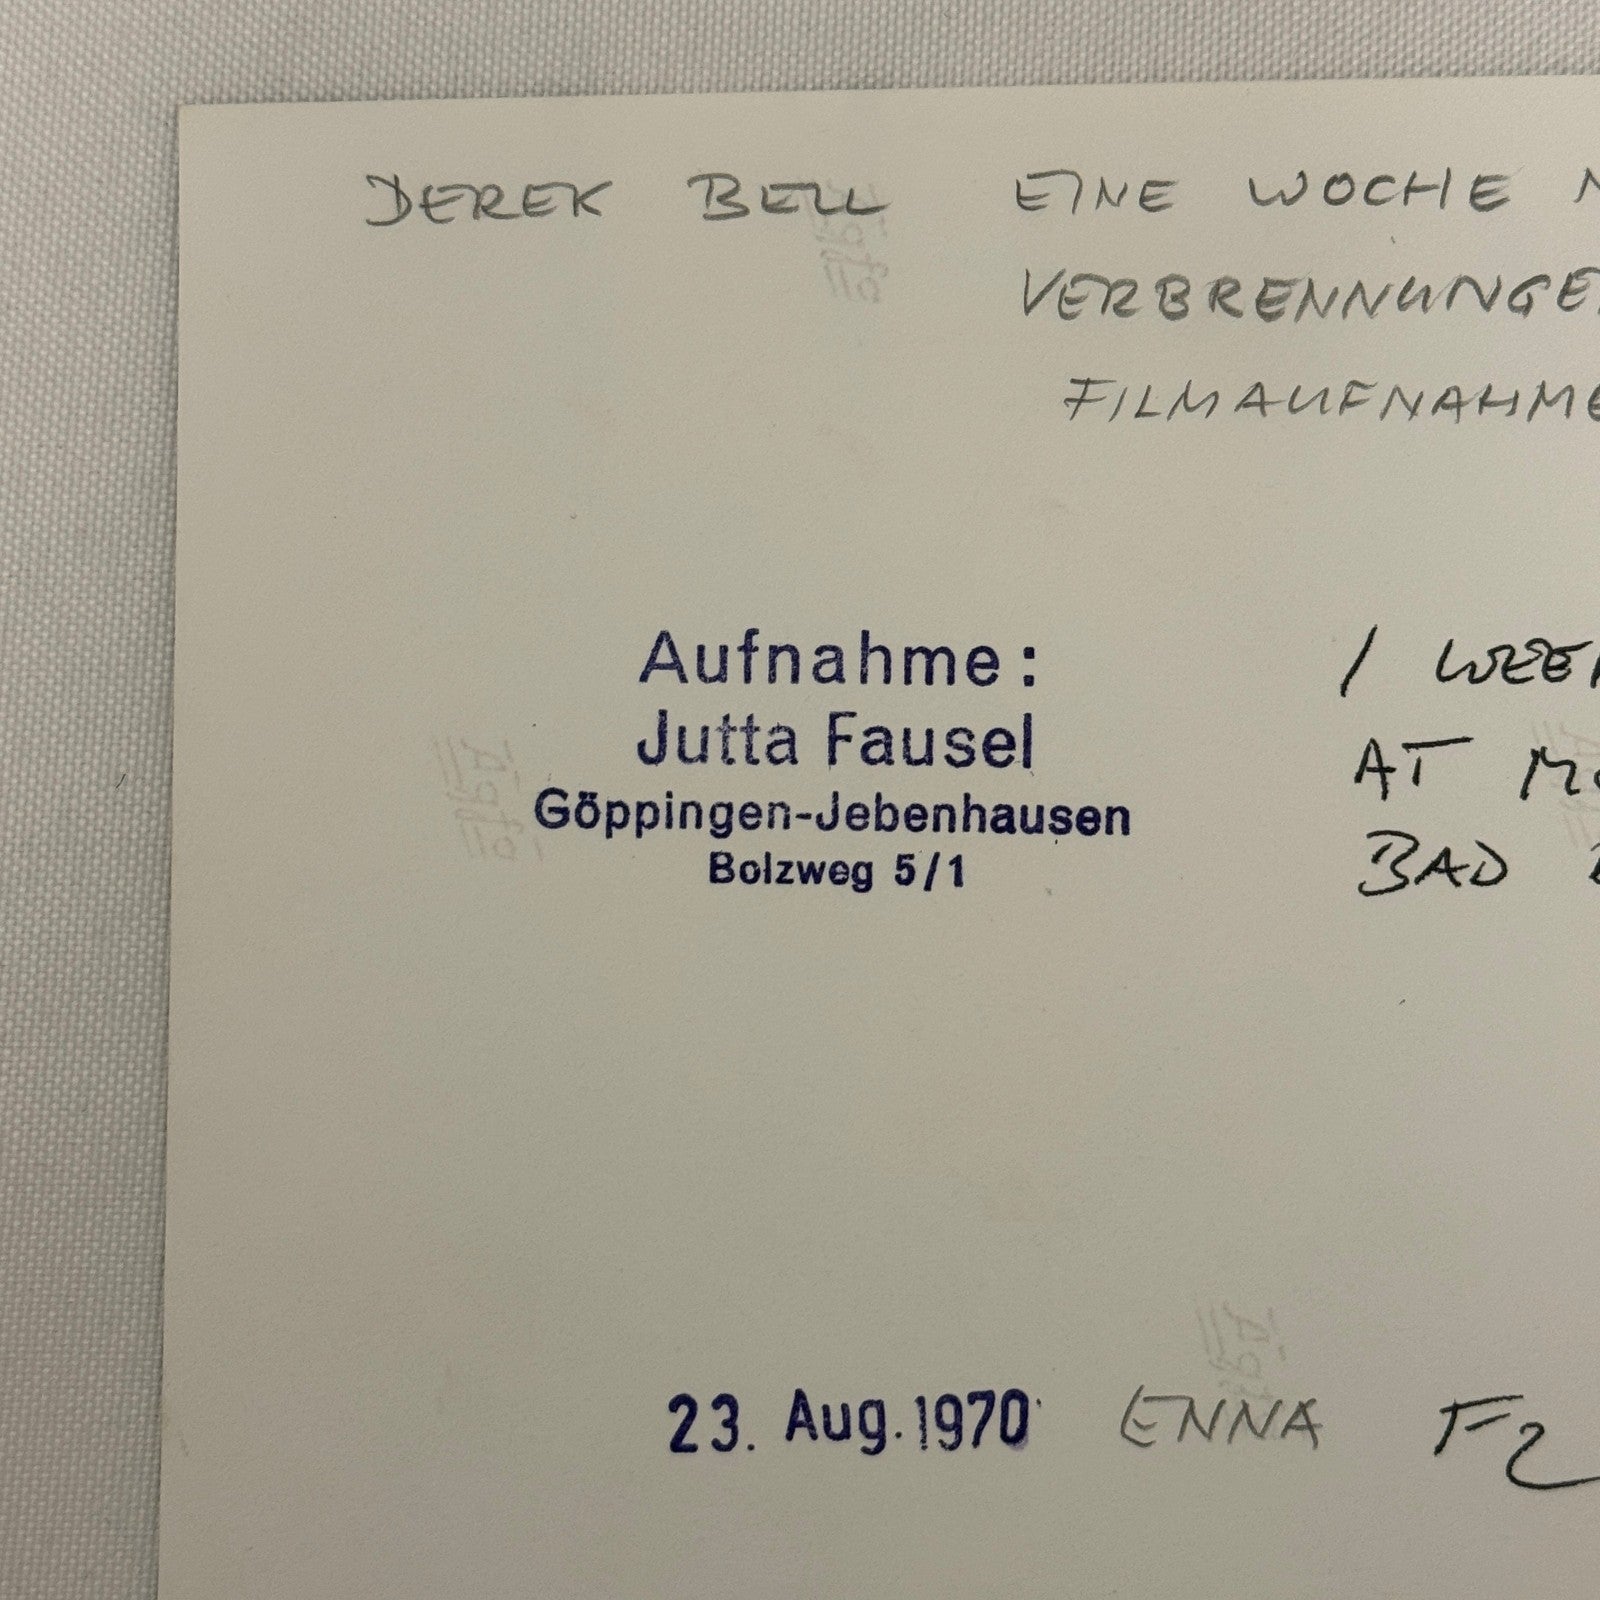 DEREK BELL EINE WOCHE
VERBRENNUNGE
FILMAUFNAHME
Aufnahme:
Jutta Fausel
Göppingen-Jebenhausen
Bolzweg 5/1
1 WEE
AT
BAD
23. Aug. 1970 ENNA F2